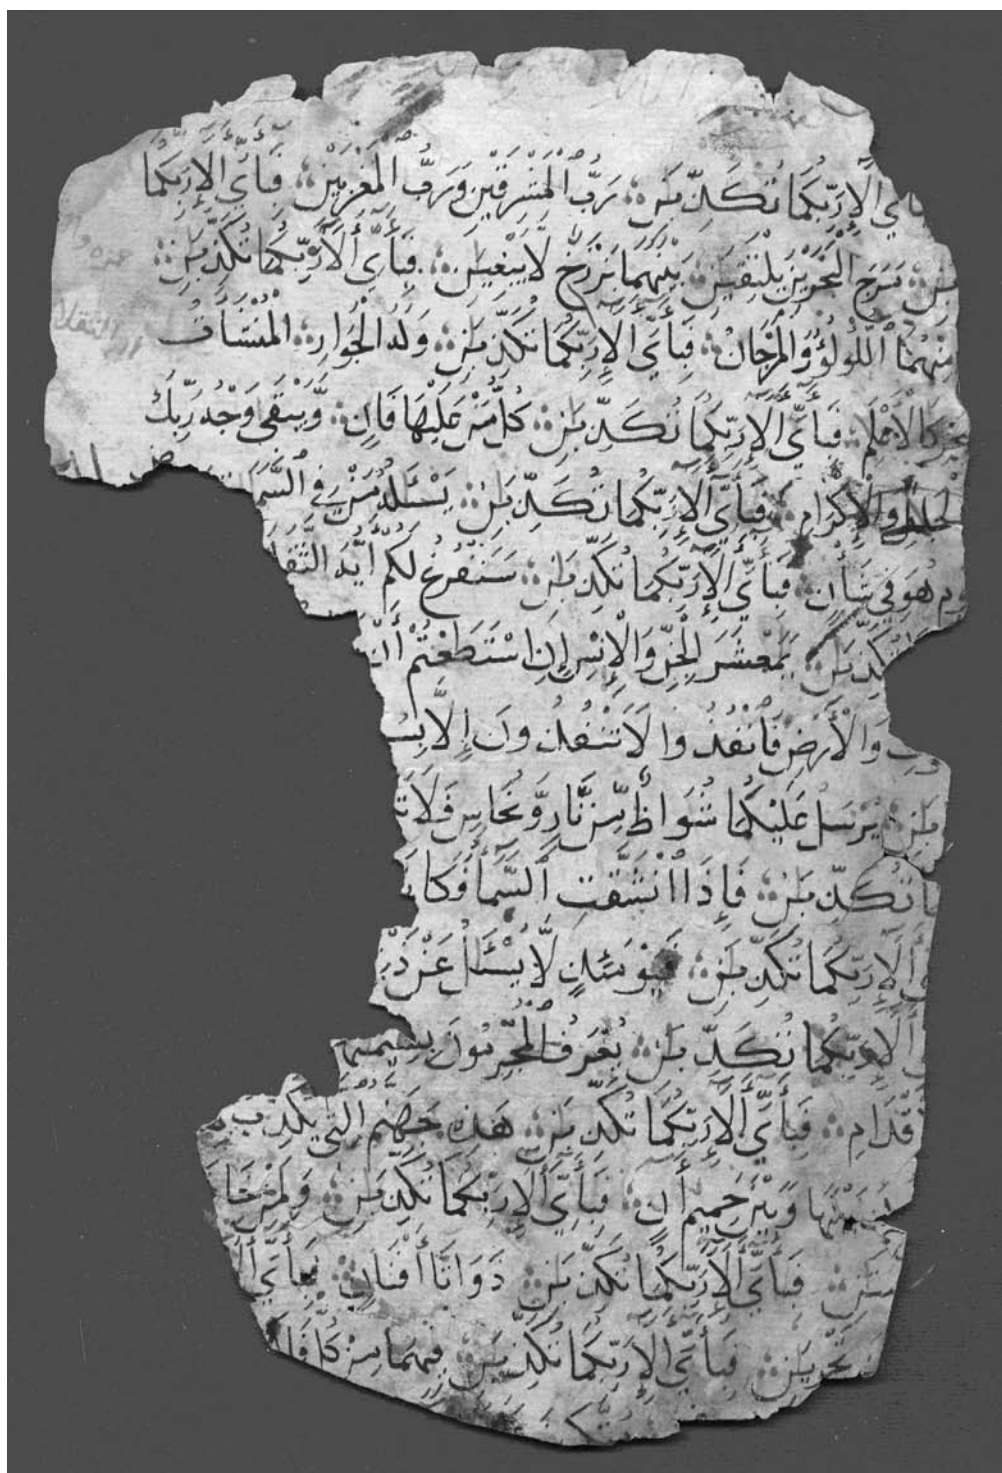 ءالاء ربكما تكذبن ۝ رَبُّ الْمَشْرِقَيْنِ وَرَبُّ الْمَغْرِبَيْنِ ۝ فَبِأَيِّ ءَالَاءِ رَبِّكُمَا
مَرَجَ الْبَحْرَيْنِ يَلْتَقِيَنِ ۝ بَيْنَهُمَا بَرْزَخٌ لَّا يَبْغِيَنِ ۝ فَبِأَيِّ ءَالَاءِ رَبِّكُمَا تُكَذِّبَنِ ۝
مِنْهُمَا اللُّؤْلُؤُ وَالْمَرْجَانُ ۝ فَبِأَيِّ ءَالَاءِ رَبِّكُمَا تُكَذِّبَنِ ۝ وَلَهُ الْجَوَارِ الْمُنْشَأَتُ
كَالْأَعْلَمِ ۝ فَبِأَيِّ ءَالَاءِ رَبِّكُمَا تُكَذِّبَنِ ۝ كُلُّ مَنْ عَلَيْهَا فَانٍ ۝ وَيَبْقَى وَجْهُ رَبِّكَ
الْجَلَلِ وَالْإِكْرَامِ ۝ فَبِأَيِّ ءَالَاءِ رَبِّكُمَا تُكَذِّبَنِ ۝ يَسْئَلُهُ مَنْ فِي السَّمَ
هُوَ فِي شَأْنٍ ۝ فَبِأَيِّ ءَالَاءِ رَبِّكُمَا تُكَذِّبَنِ ۝ سَنَفْرُغُ لَكُمْ أَيُّهَ الثَّقَلَ
تُكَذِّبَنِ ۝ يَمَعْشَرَ الْجِنِّ وَالْإِنْسِ إِنِ اسْتَطَعْتُمْ أَنْ
وَالْأَرْضِ فَانْفُذُوا لَا تَنْفُذُونَ إِلَّا بِسُ
بَنِ ۝ يُرْسَلُ عَلَيْكُمَا شُوَاظٌ مِّنْ نَّارٍ وَنُحَاسٍ فَلَا تَ
تُكَذِّبَنِ ۝ فَإِذَا انْشَقَّتِ السَّمَاءُ فَكَا
ءَالَاءِ رَبِّكُمَا تُكَذِّبَنِ ۝ فَيَوْمَئِذٍ لَّا يُسْئَلُ عَنْ ذَ
ءَالَاءِ رَبِّكُمَا تُكَذِّبَنِ ۝ يُعْرَفُ الْمُجْرِمُونَ بِسِيمَهُ
قْدَامِ ۝ فَبِأَيِّ ءَالَاءِ رَبِّكُمَا تُكَذِّبَنِ ۝ هَذِهِ جَهَنَّمُ الَّتِي يُكَذِّبُ
بَيْنَهَا وَبَيْنَ حَمِيمٍ ءَانٍ ۝ فَبِأَيِّ ءَالَاءِ رَبِّكُمَا تُكَذِّبَنِ ۝ وَلِمَنْ خَا
فَبِأَيِّ ءَالَاءِ رَبِّكُمَا تُكَذِّبَنِ ۝ ذَوَاتَا أَفْنَانٍ ۝ فَبِأَيِّ ءَالَ
تَجْرِيَنِ ۝ فَبِأَيِّ ءَالَاءِ رَبِّكُمَا تُكَذِّبَنِ ۝ فِيهِمَا مِنْ كُلِّ فَاكِ